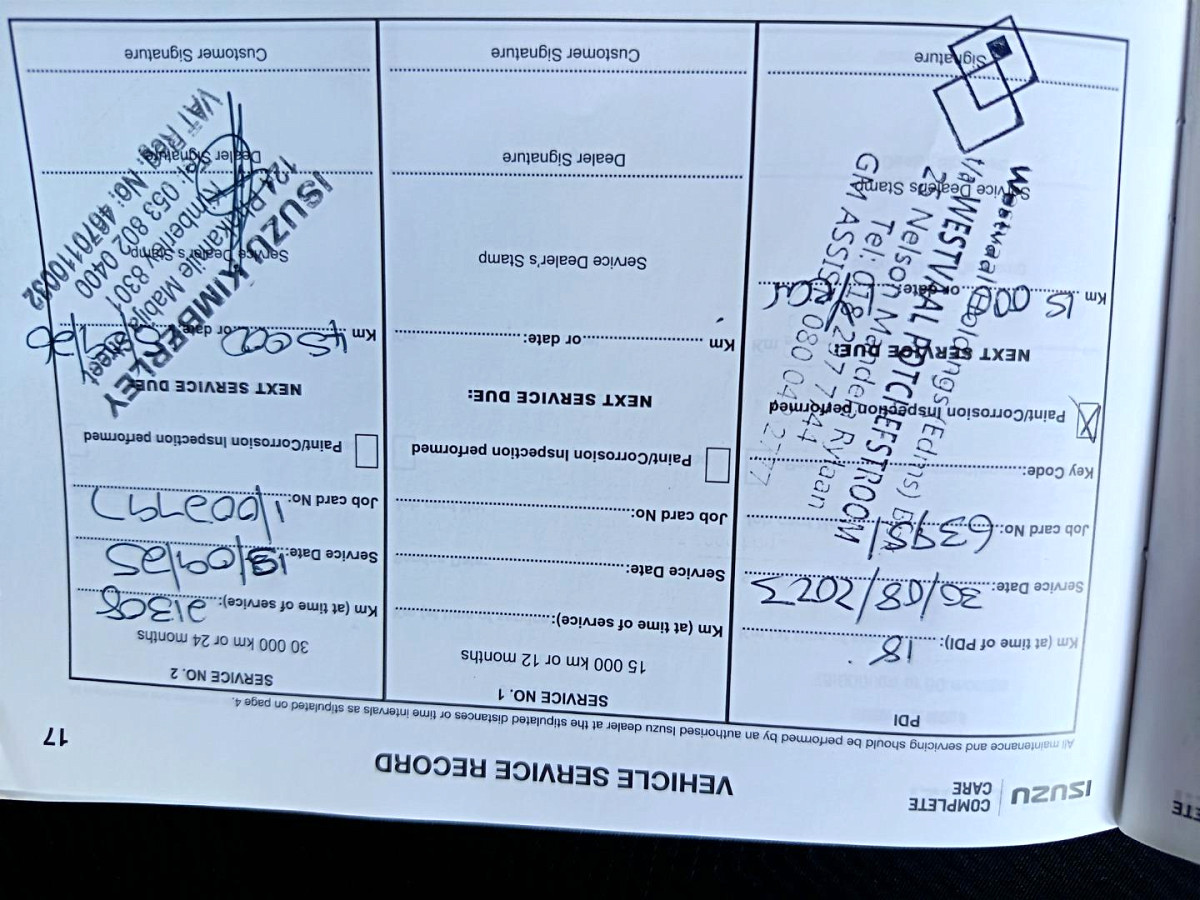 ISUZU
COMPLETE
CARE
VEHICLE SERVICE RECORD
17
All maintenance and servicing should be performed by an authorised Isuzu dealer at the stipulated distances or time intervals as stipulated on page 4.
PDI
Km (at time of PDI): 18
Service Date: 30/08/2023
Job card No:
Key Code:
Paint/Corrosion Inspection performed
NEXT SERVICE DUE:
Km 15 000 or date:
Service Dealer's Stamp
Signature
Westvaal Holdings (Edms) Bpk
t/a WESTVAAL POTCHEFSTROOM
25 Nelson Mandela Rylaan
Tel: 018 297 7441
GM ASSIST
SERVICE NO. 1
15 000 km or 12 months
Km (at time of service):
Service Date:
Job card No:
Paint/Corrosion Inspection performed
NEXT SERVICE DUE:
Km or date:
Service Dealer's Stamp
Dealer Signature
Customer Signature
SERVICE NO. 2
30 000 km or 24 months
Km (at time of service): 21308
Service Date: /09/25
Job card No: 1002797
Paint/Corrosion Inspection performed
NEXT SERVICE DUE:
Km 45 000 or date:
Service Dealer's Stamp
Dealer Signature
Customer Signature
ISUZU KIMBERLEY
124 Phakamile Mabija Street
Kimberley 8301
Tel: 053 802 0400
VAT Reg. No: 4670110032
ETE